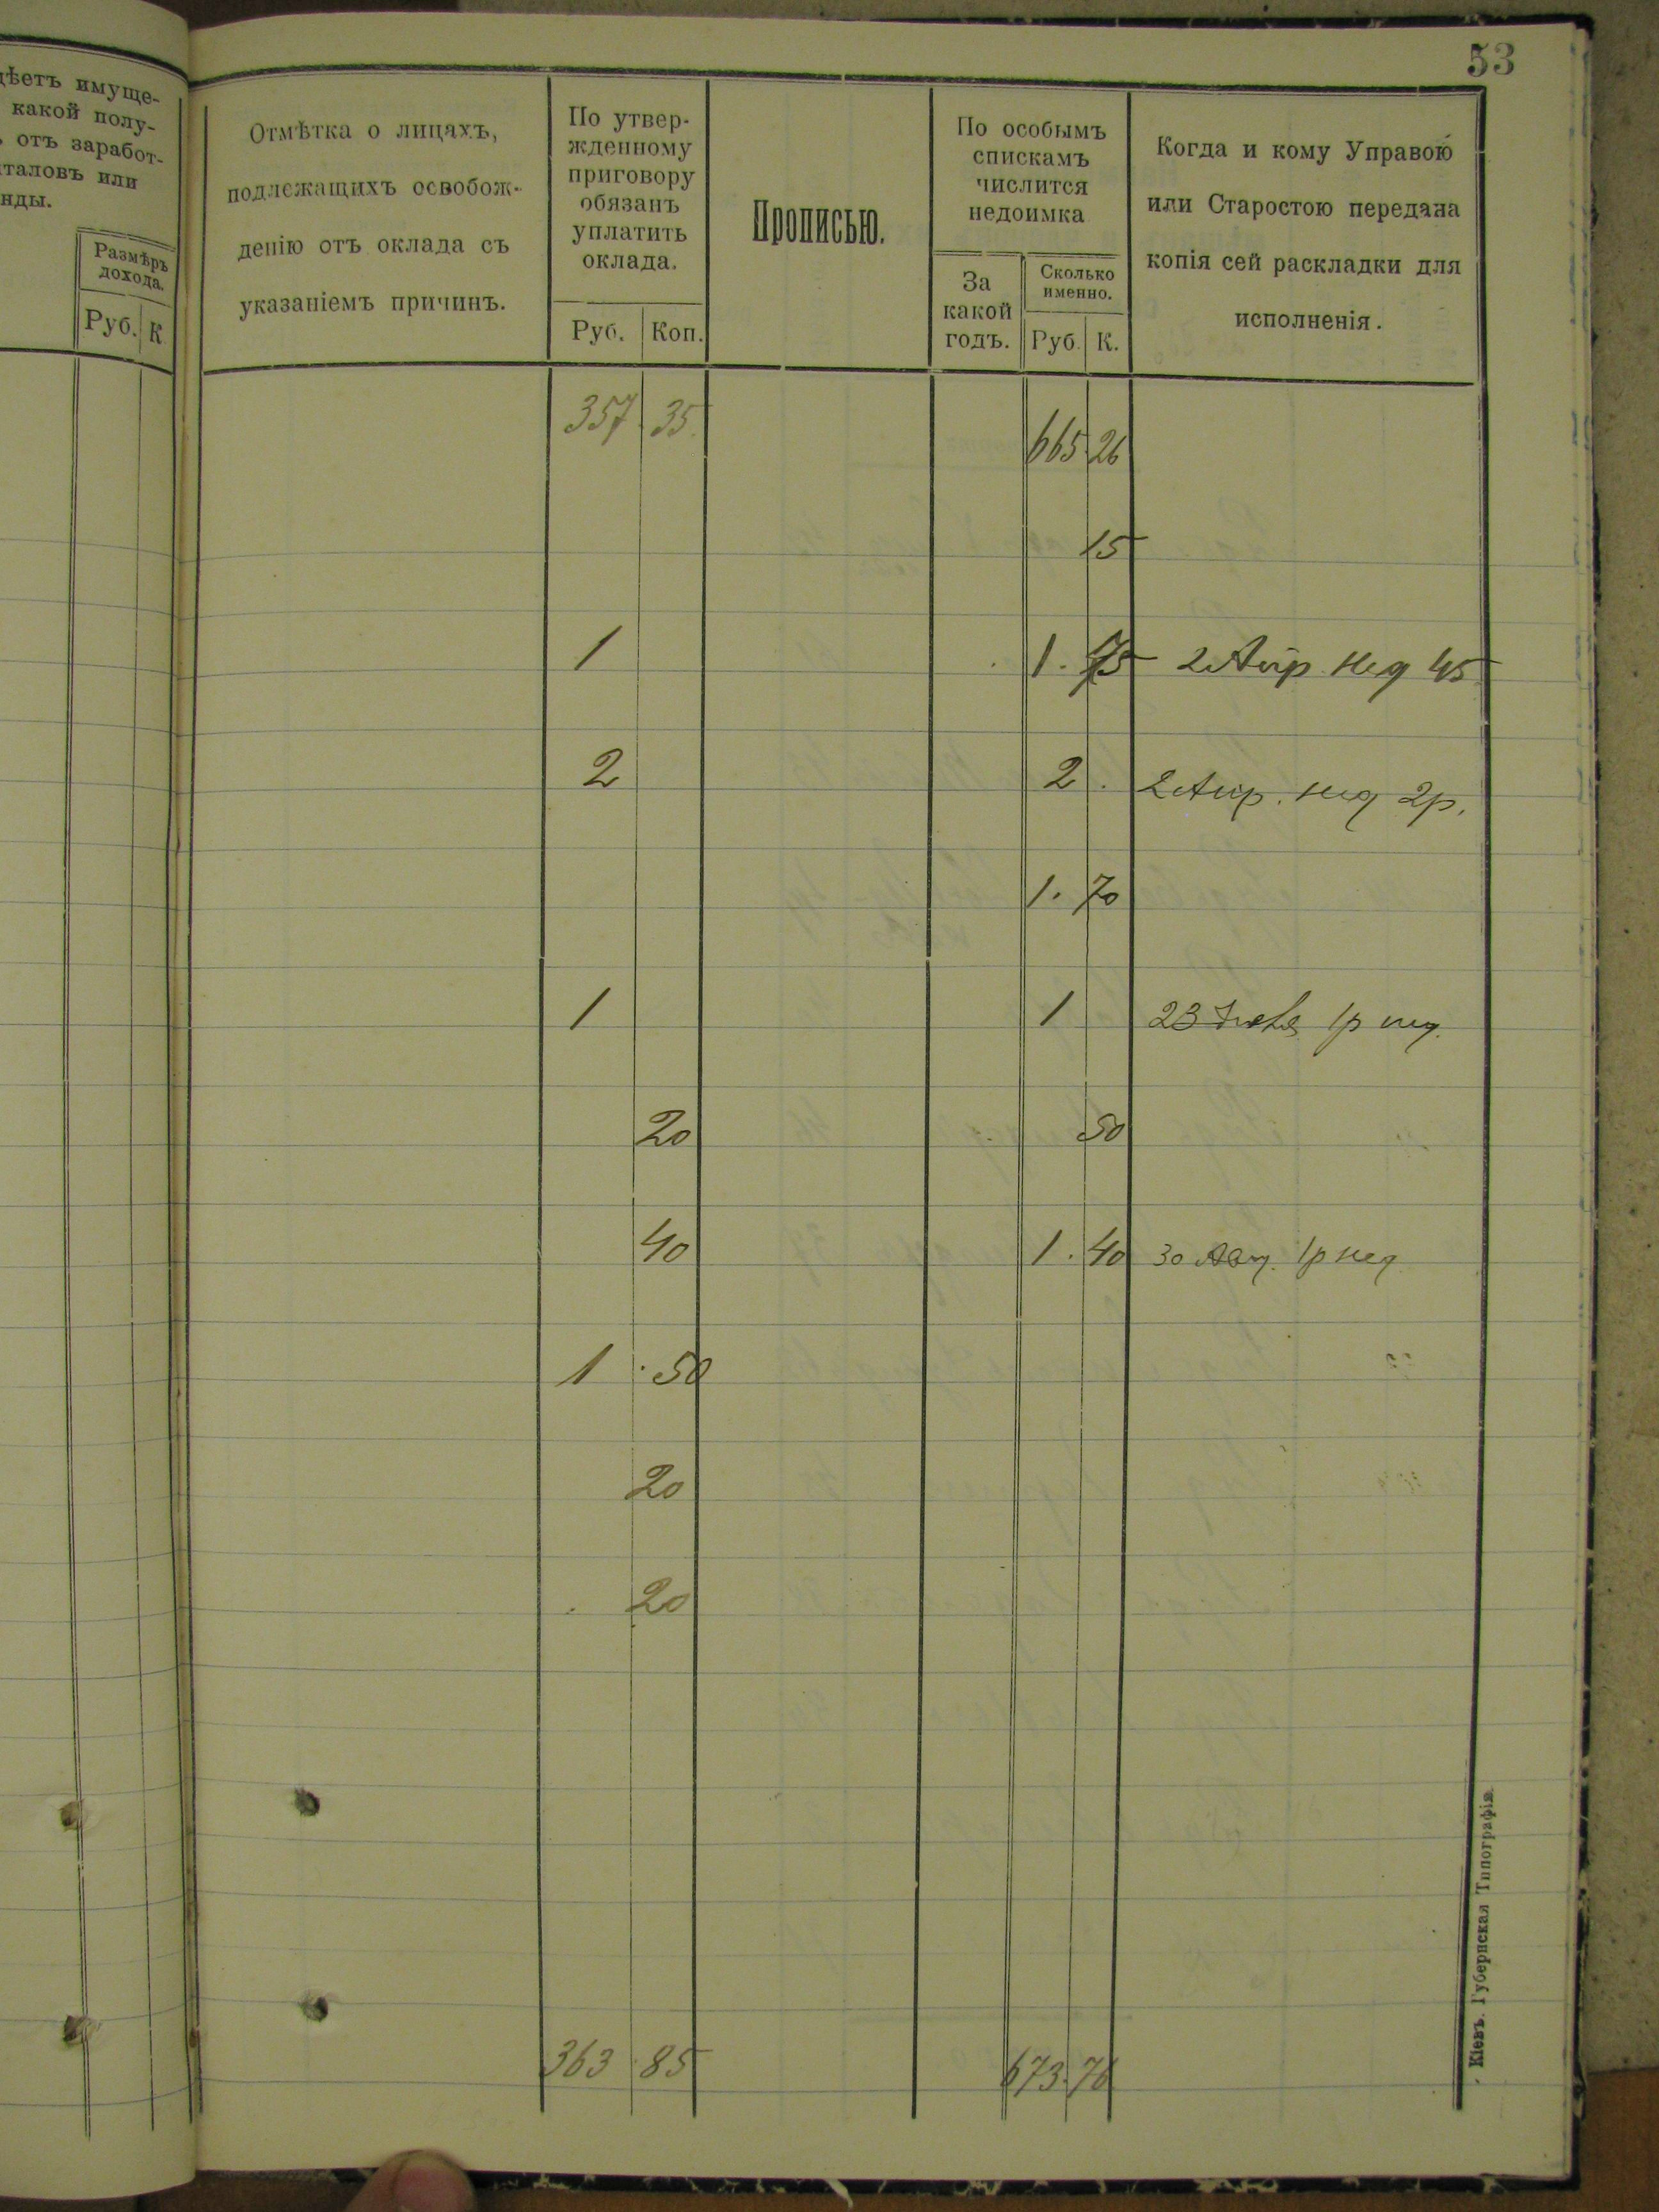 53
дѣетъ имуще-
какой полу-
отъ заработ-
италовъ или
нды.
Размѣръ
дохода.
Руб. К.
Отмѣтка о лицахъ,
подлежащихъ освобож-
денію отъ оклада съ
указаніемъ причинъ.
По утвер-
жденному
приговору
обязанъ
уплатить
оклада.
Руб. Коп.
Прописью.
По особымъ
спискамъ
числится
недоимка
За
какой
годъ.
Сколько
именно.
Руб. К.
Когда и кому Управою
или Старостою передана
копія сей раскладки для
исполненія.
357 35
665 26
15
1 1. 75 2 Апр нед 45
2 2. 2 Апр. нед 2р.
1. 70
1 1 23 1р нед.
20 50
40 1. 40 30 Авг. 1р нед
1 50
20
20
363 85 673 76
Кіевъ. Губернская Типографія.